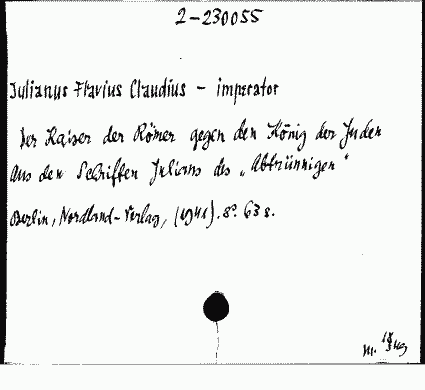 2-230055
Julianus Flavius Claudius - imperator
Der Kaiser der Römer gegen den König der Juden
Aus den Schriften Julians des „Abtrünnigen“
Berlin, Nordland-Verlag, (1941). 8°. 63 s.
m.